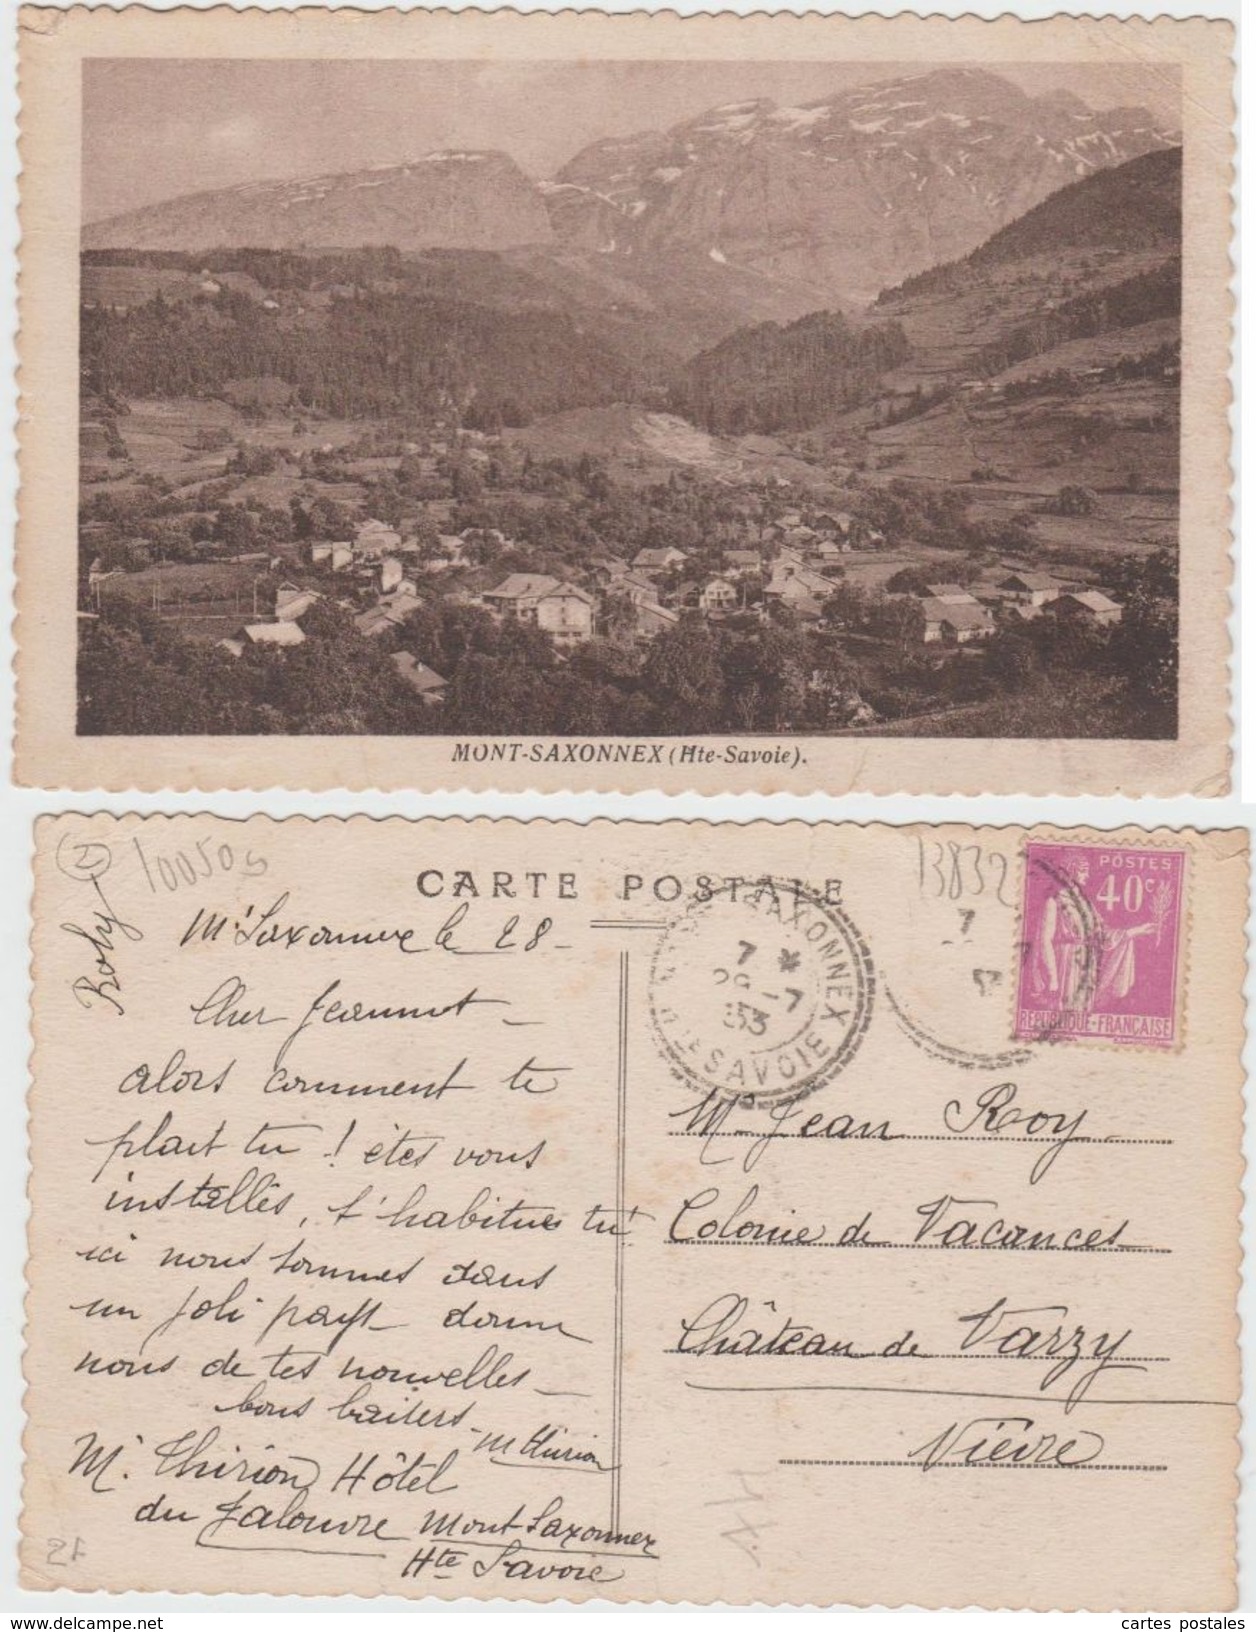 MONT-SAXONNEX (Hte-Savoie).
10050s
13832
CARTE POSTALE
POSTES
40c
REPUBLIQUE-FRANÇAISE
SAXONNEX
7 *
28 -7
33
HTE SAVOIE
Mt Saxonnex le 28 -
Cher Jeannot -
alors comment te
plait tu ! êtes vous
installés, t'habitues tu!
ici nous sommes dans
un joli pays - donne
nous de tes nouvelles -
bons baisers -
M Thirion
M. Thirion Hôtel
du Jalouvre Mont-Saxonnex
Hte Savoie
Mr Jean Roy
Colonie de Vacances
Château de Varzy
Nièvre
www.delcampe.net
cartes postales